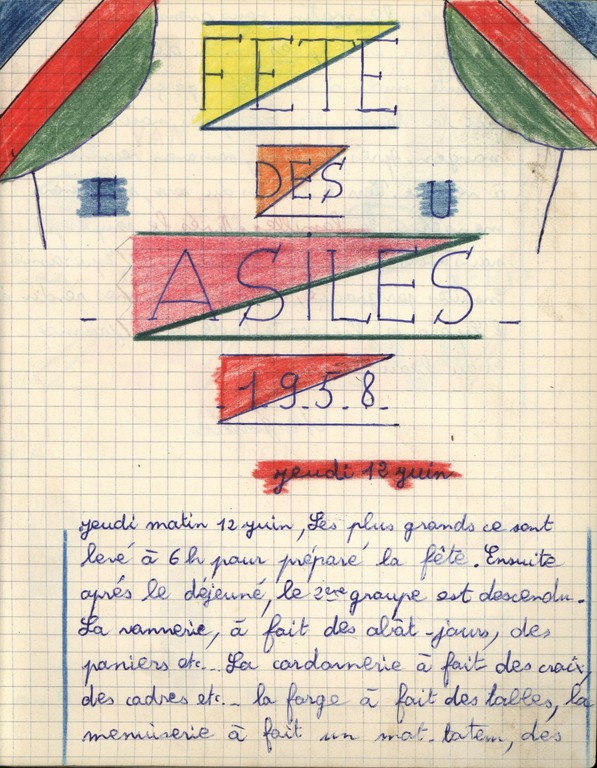 FETE
DES
E U
- ASILES -
- 1.9.5.8 -
jeudi 12 juin
jeudi matin 12 juin, Les plus grands ce sont
levé à 6 h pour préparé la fête. Ensuite
aprés le déjeuné, le 2eme groupe est descendu.
La vannerie, à fait des abât-jours, des
paniers etc... La cordonnerie à fait des croix,
des cadres etc... la forge à fait des tables, la
menuiserie à fait un mat-totem, des